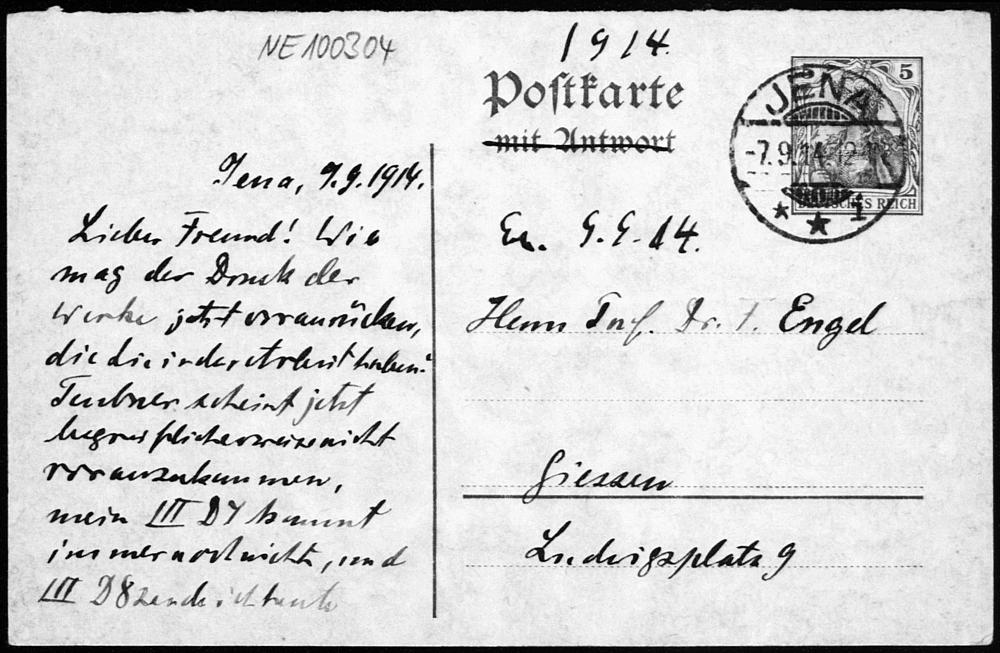 NE100304
1914.
Postkarte
mit Antwort
5
JENA
-7.9.14.12-
DEUTSCHES REICH
* * 1
Jena, 7.9.1914.
Lieber Freund! Wie
mag der Druck der
Werke jetzt voranrücken,
die Sie in der Arbeit haben?
Teubner scheint jetzt
begreiflicherweise nicht
voranzukommen,
mein III D7 kommt
immer noch nicht, und
III D8 sende ich heute
En. 9.9.14.
Herrn Prof. Dr. F. Engel
Giessen
Ludwigsplatz 9